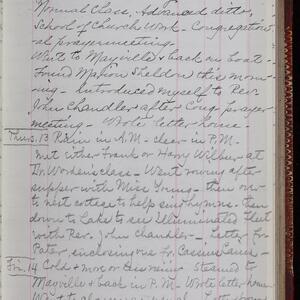 Normal Class, Advanced ditto,
School of Church Work - Congregation-
al prayermeeting -
Went to Mayville & back on boat -
Found Mation Sheldon this morn-
ing - Introduced myself to Rev.
John Chandler after Cong. prayer
meeting - Wrote letter home -
Thurs. 13 Rain in A.M. - clear in P.M. -
met either Frank or Harry Wilbur at
Dr. Worden's class - Went rowing after
supper with Miss Young - then over
to next cottage to help sing hymns - then
down to Lake to see Illuminated Fleet
with Rev. John Chandler - Letter for
Pater, inclosing one fr.
Fri. 14 Cold & more or less rainy - Steamed to
Mayville & back in P.M. - Wrote letter home -